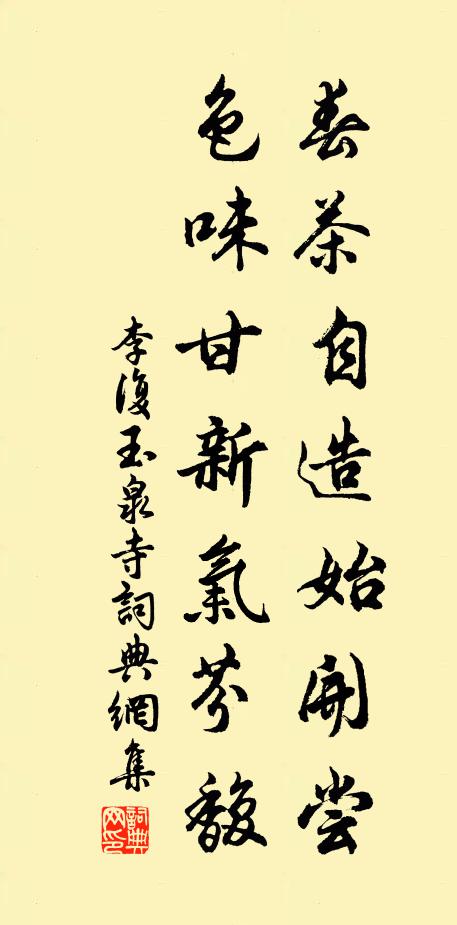 春茶自造始開嘗
色味甘新氣芬馥
李復玉泉寺詞典網集
詞典
网印